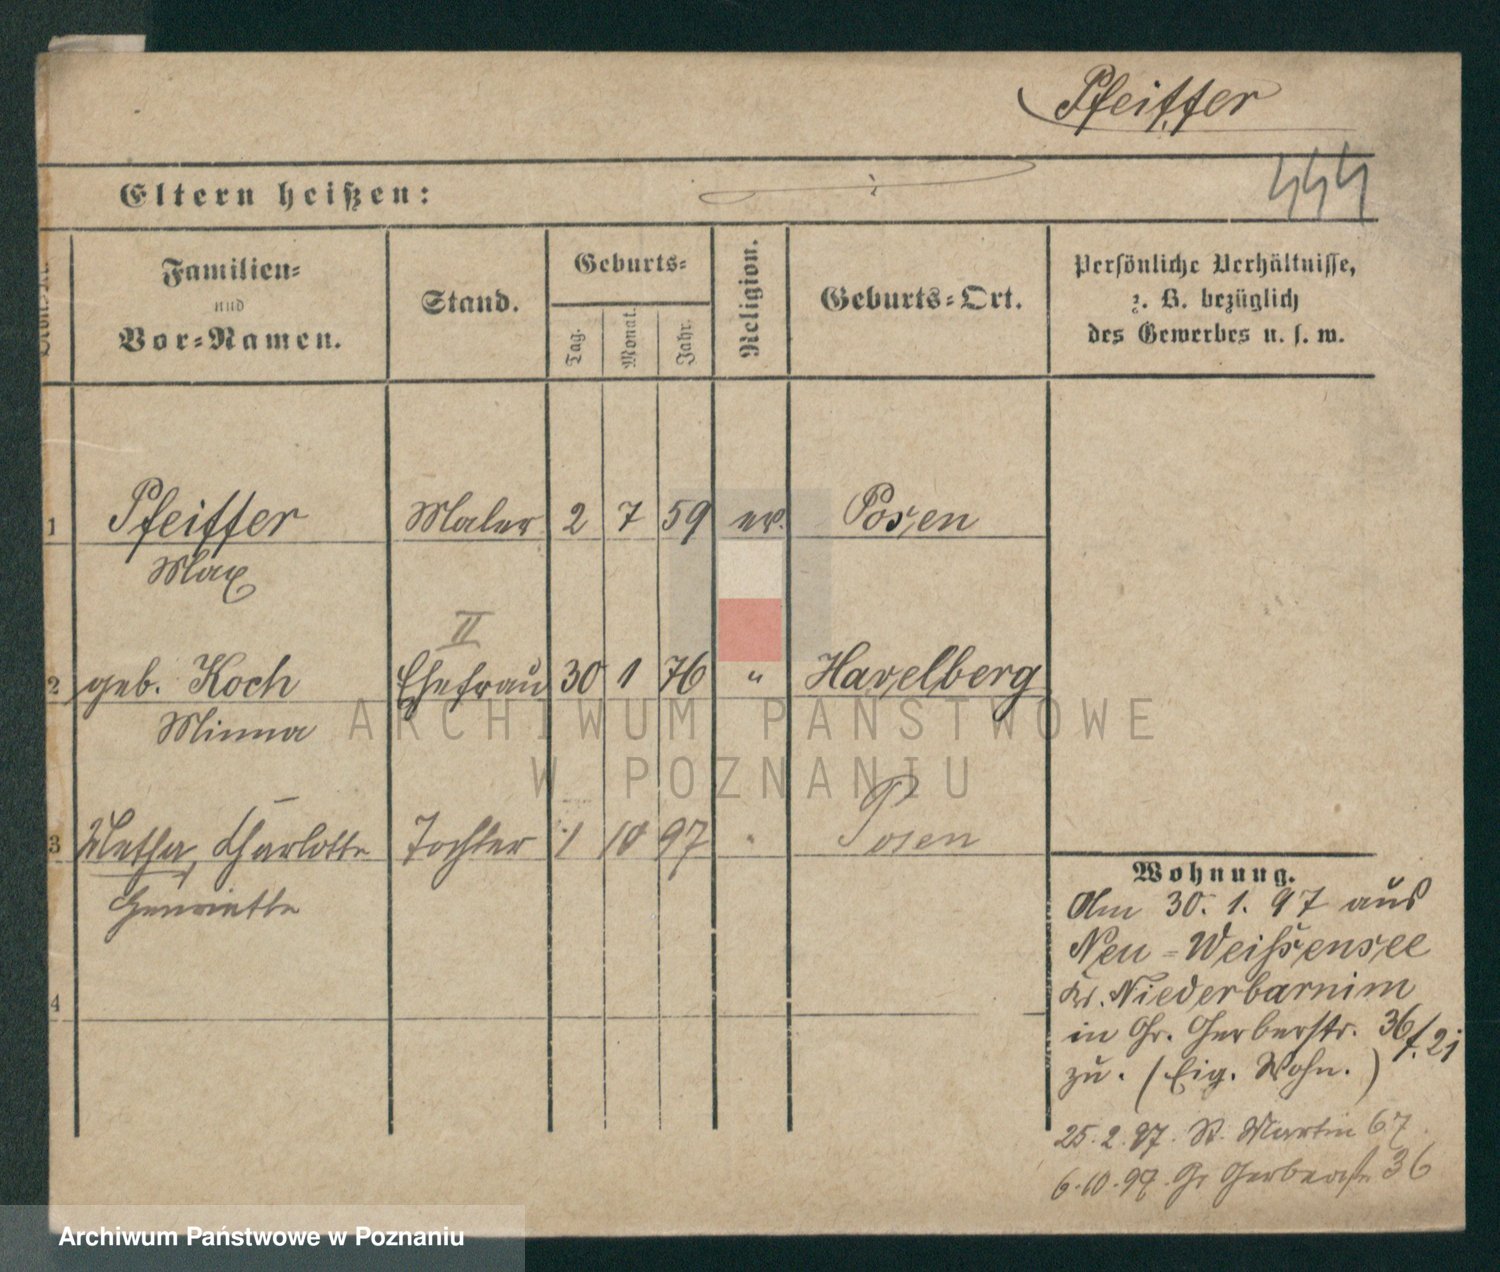 Pfeiffer
444
Eltern heißen:
Familien=
und
Vor=Namen.
Stand.
Geburts=
Tag.
Monat.
Jahr.
Religion.
Geburts=Ort.
Persönliche Verhältnisse,
z. B. bezüglich
des Gewerbes u. s. w.
1 Pfeiffer Maler 2 7 59 ev. Posen
Max
II
2 geb. Koch Ehefrau 30 1 76 " Havelberg
Minna
3 Charlotte Tochter 1 10 97 " Posen
Henriette
4
Wohnung.
Am 30. 1. 97 aus
Neu=Weißensee
Kr. Niederbarnim
in Gr. Gerberstr. 36
zu. (Eig. Wohn.)
25. 2. 97. St. Martin 67.
6. 10. 97. Gr Gerberstr 36
ARCHIWUM PAŃSTWOWE
W POZNANIU
Archiwum Państwowe w Poznaniu